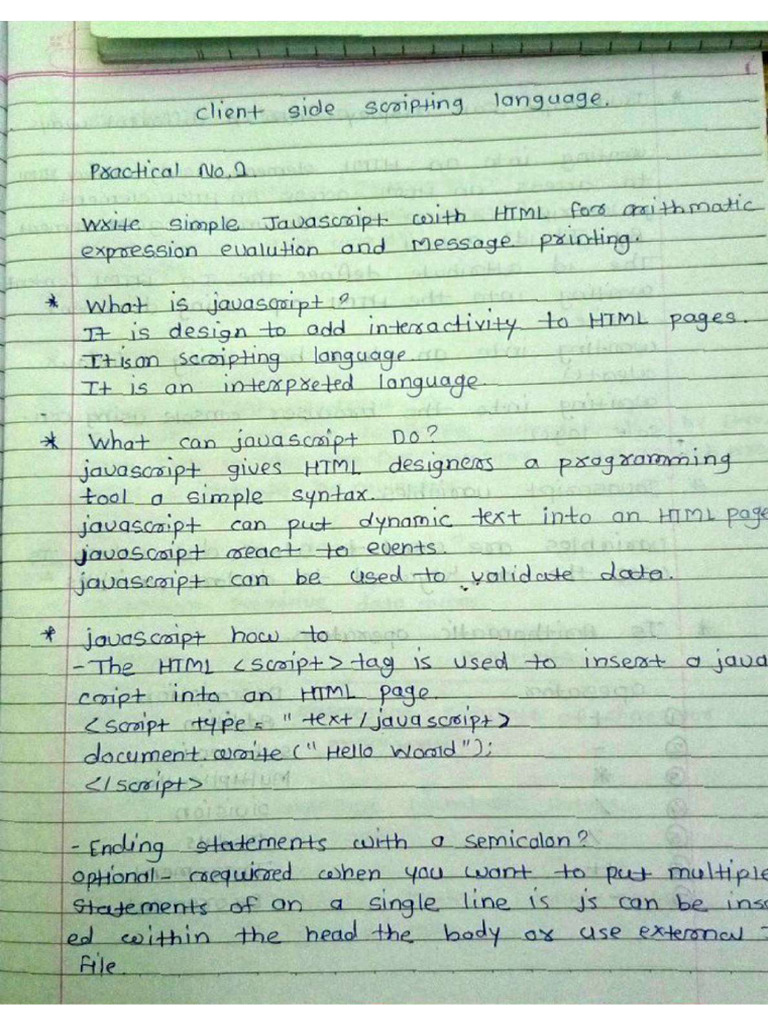 client side scripting language.
Practical No. 1
Write simple Javascript with HTML for arithmatic
expression evalution and Message printing.
* What is javascript?
It is design to add interactivity to HTML pages.
It is an scripting language
It is an interpreted language.
* What can javascript Do?
javascript gives HTML designers a programming
tool a simple syntax.
javascript can put dynamic text into an HTML page
javascript react to events.
javascript can be used to validate data.
* javascript how to
- The HTML <script> tag is used to insert a java
cript into an HTML page.
<script type = "text/javascript>
document.write ("Hello World");
</script>
- Ending statements with a semicolon?
optional - required when you want to put multiple
statements of on a single line is js can be inse
ed within the head the body or use external
file.